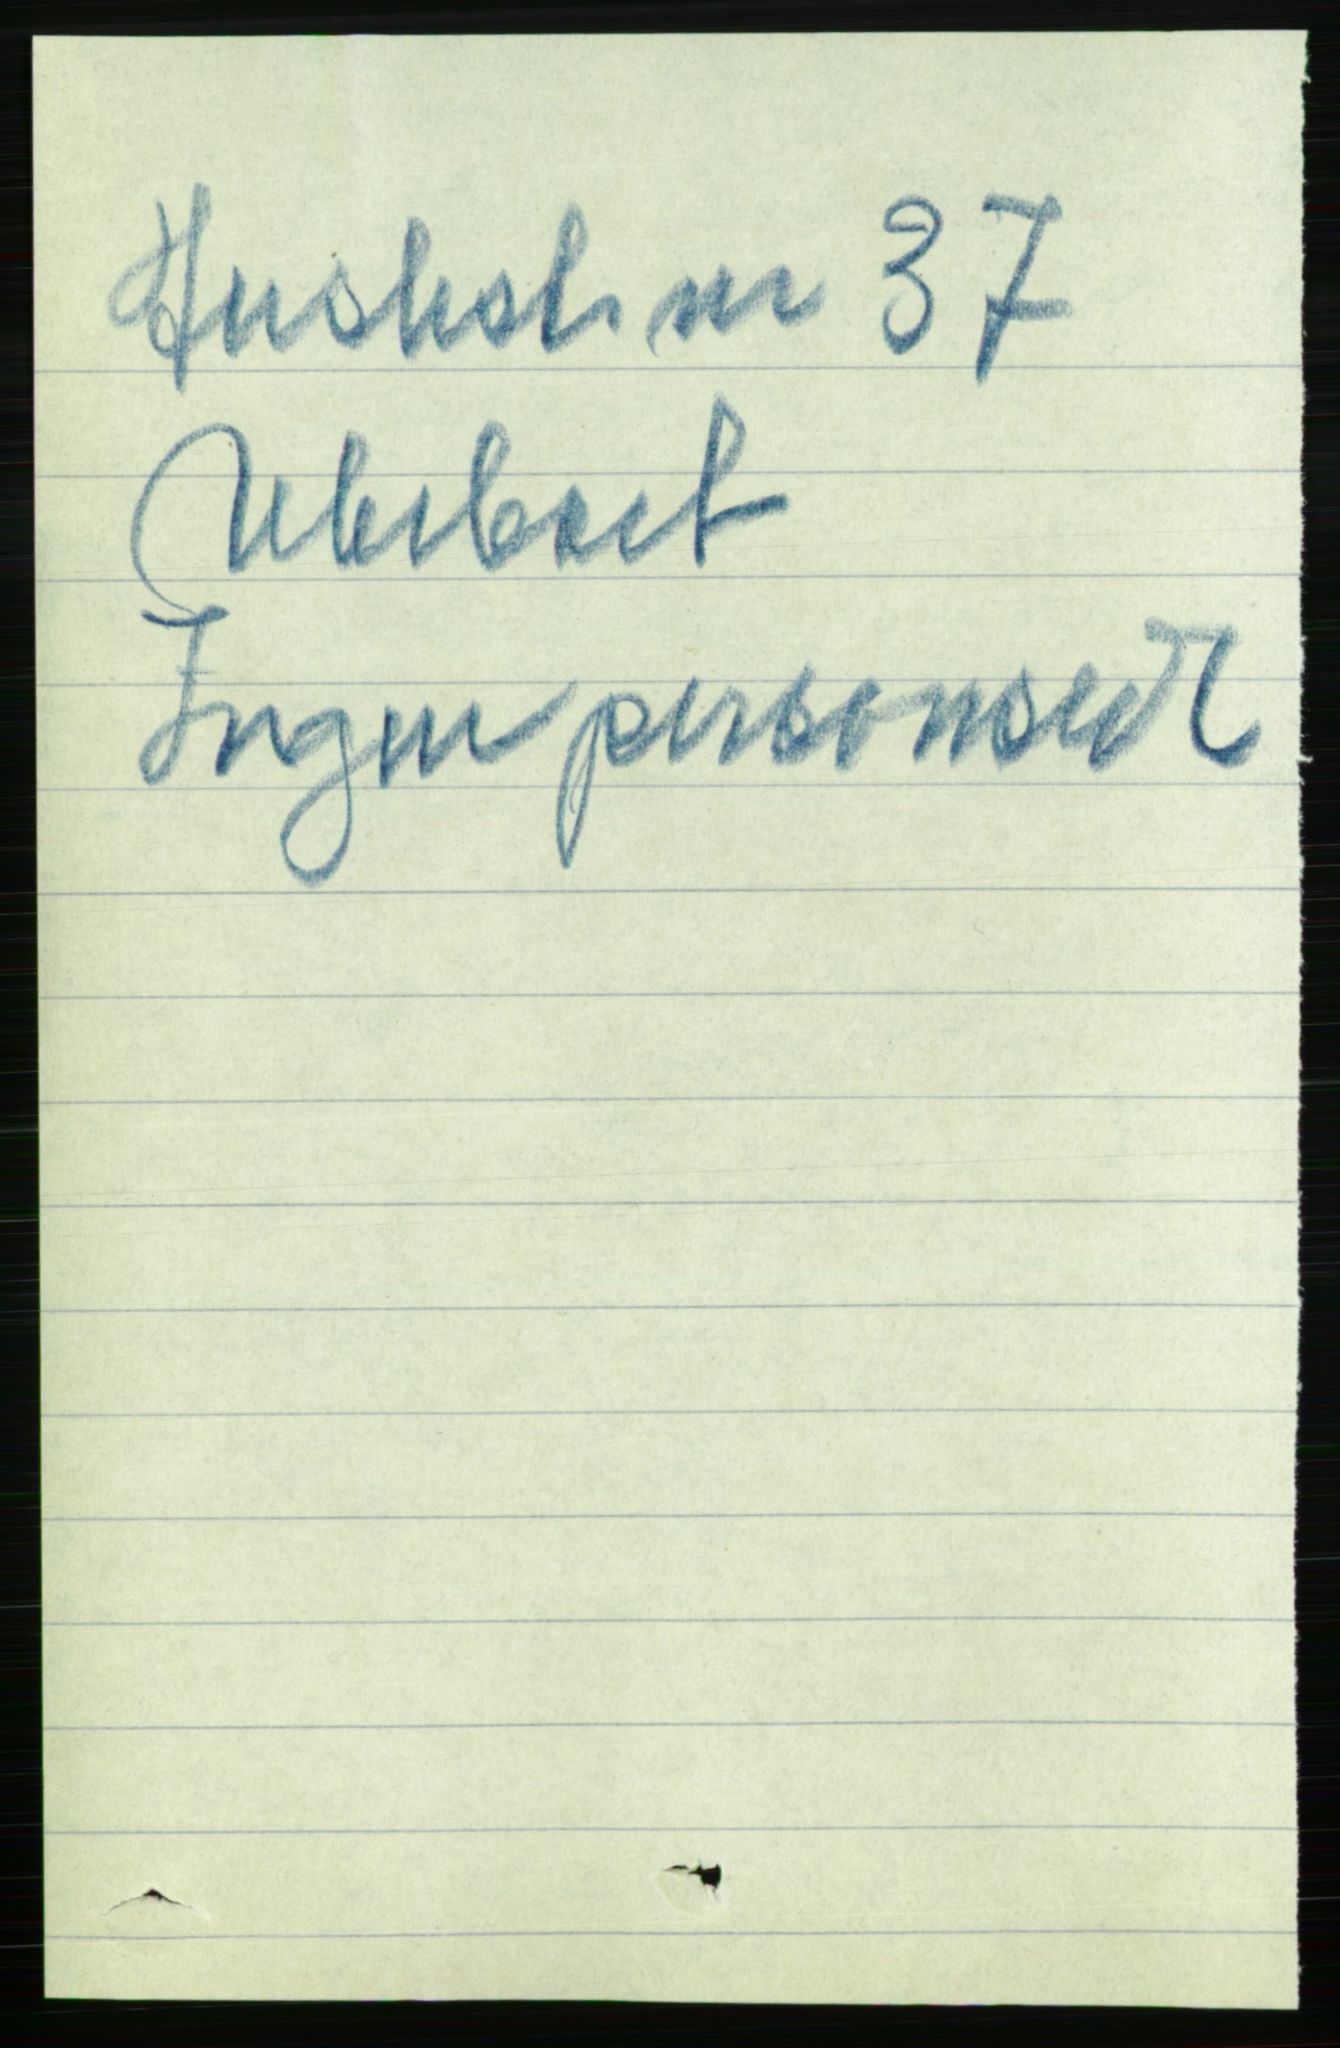 Husholdn. nr 37
Ubeboet
Ingen personsedl